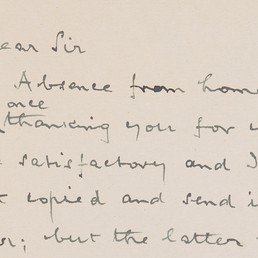 ear Sir
Absence from home
once
thanking you for
satisfactory and I
copied and send i
; but the latter